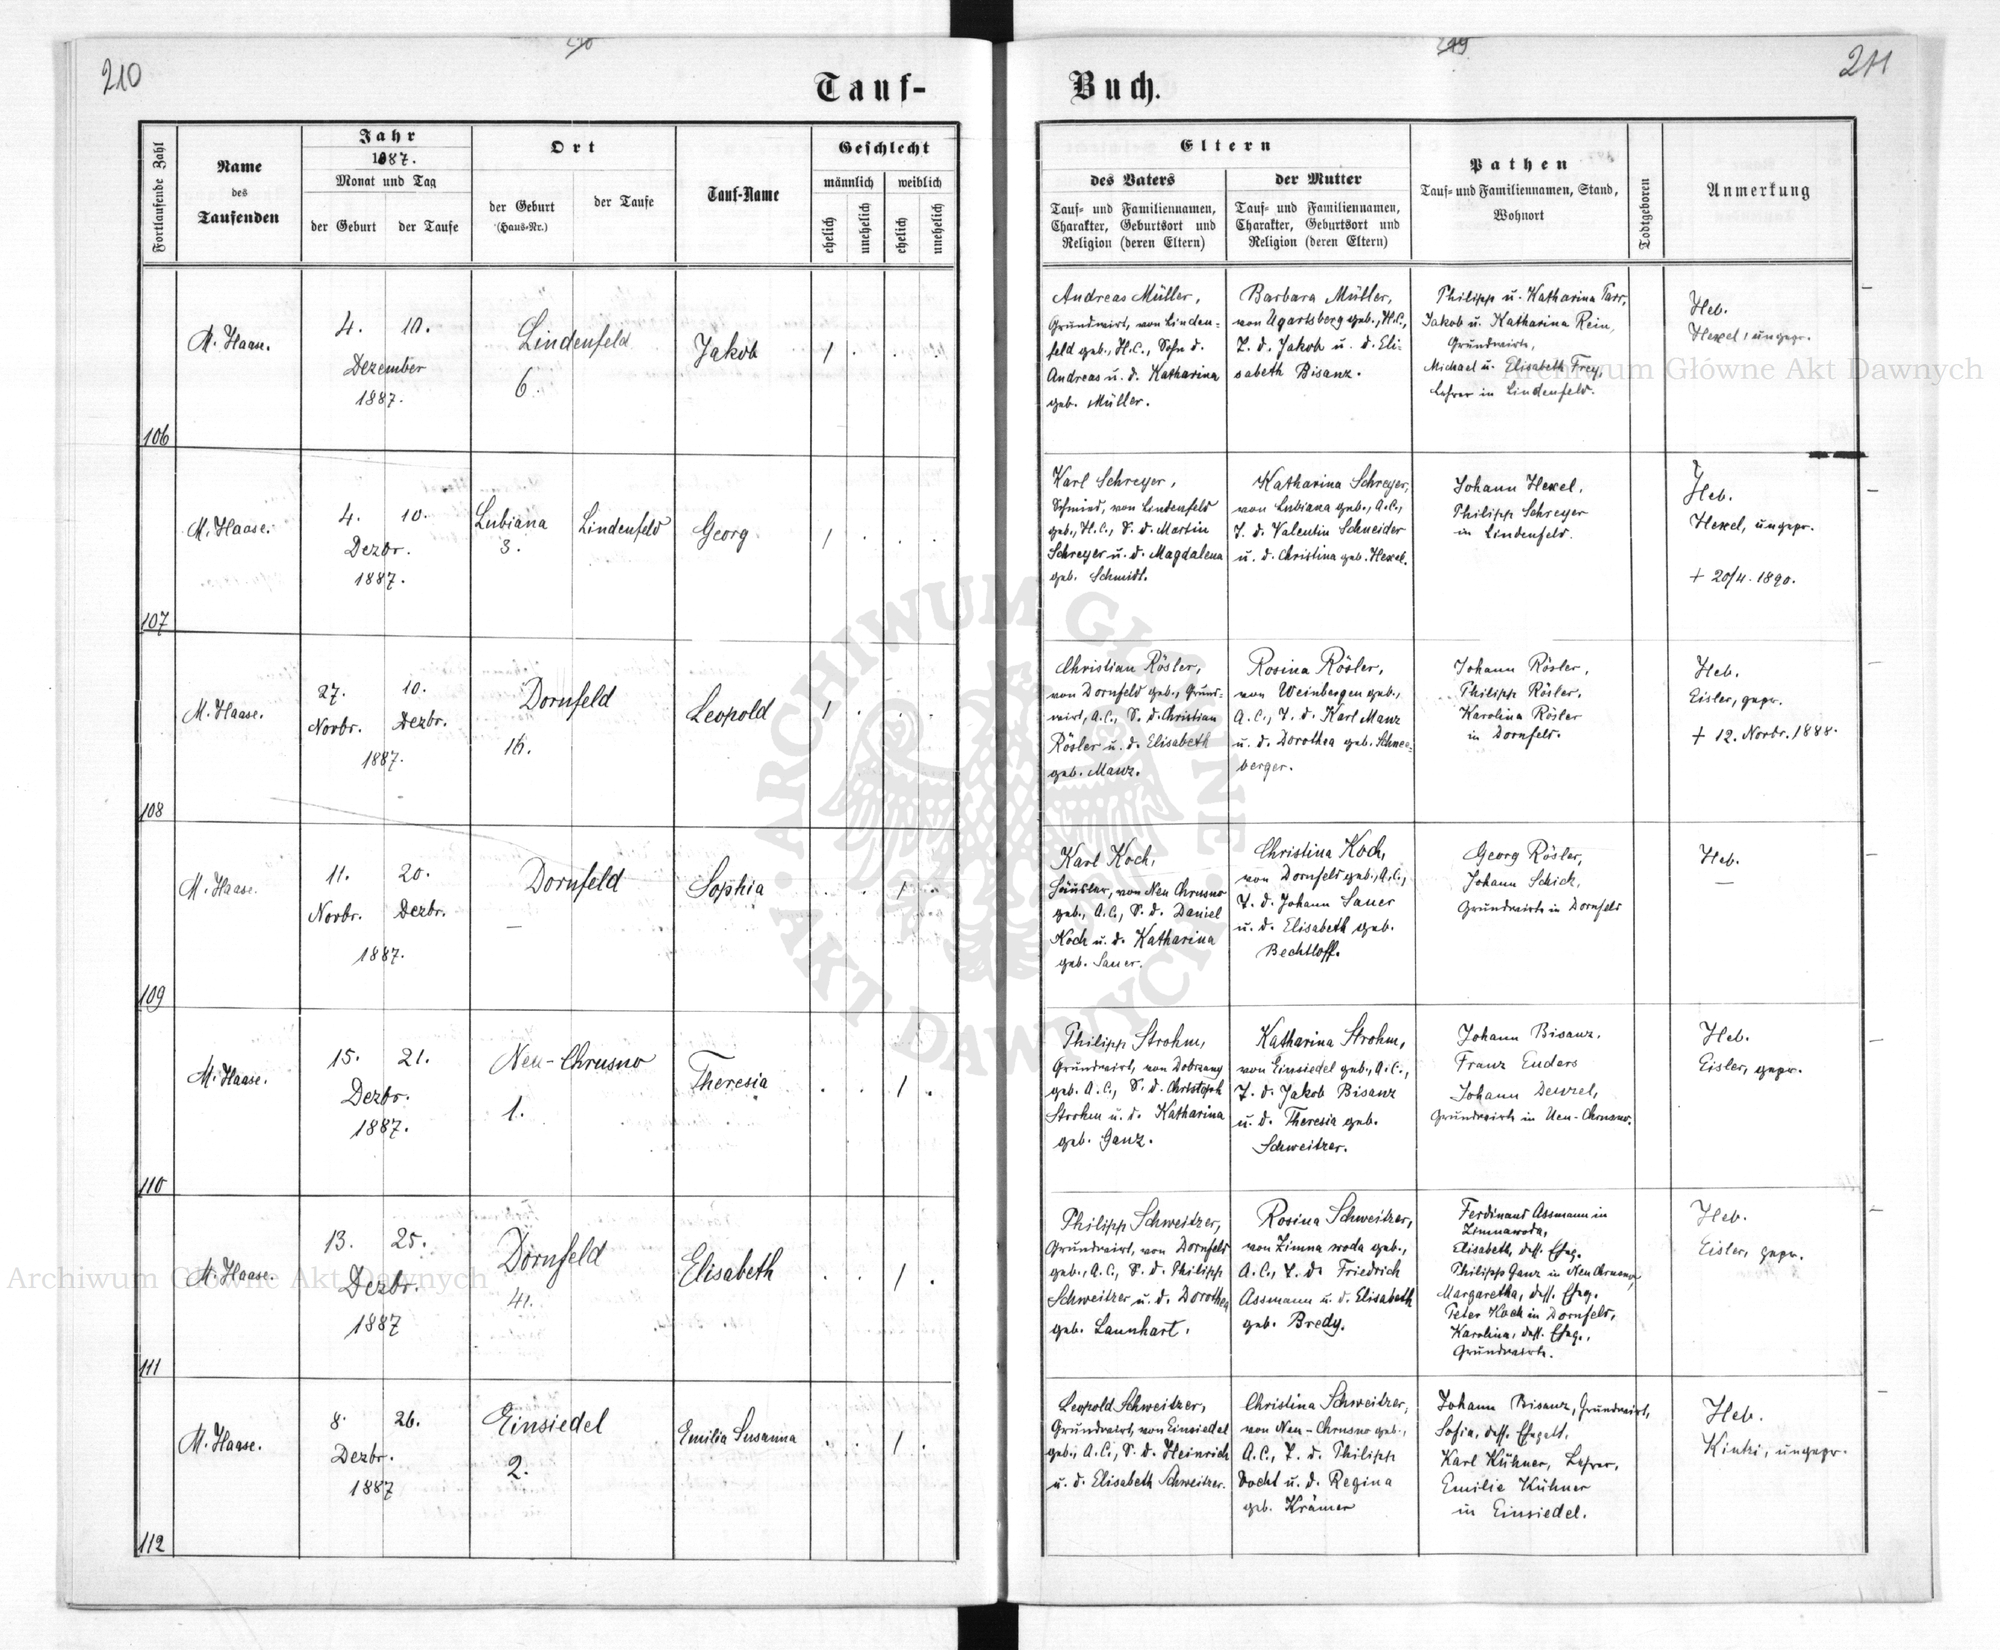 210
Tauf-
Fortlaufende Zahl
Name
des
Taufenden
Jahr
1887.
Monat und Tag
der Geburt
der Taufe
Ort
der Geburt
(Haus-Nr.)
der Taufe
Tauf-Name
Geschlecht
männlich
weiblich
ehelich
unehelich
ehelich
unehelich
106
M. Haase.
4. 10.
Dezember
1887.
Lindenfeld
6.
Jakob
1 . . .
107
M. Haase.
4. 10.
Dezbr.
1887.
Lubiana
3.
Lindenfeld
Georg
1 . . .
108
M. Haase.
27. 10.
Novbr. Dezbr.
1887.
Dornfeld
16.
Leopold
1 . . .
109
M. Haase.
11. 20.
Novbr. Dezbr.
1887.
Dornfeld
–
Sophia
. . 1 .
110
M. Haase.
15. 21.
Dezbr.
1887.
Neu-Chrusno
1.
Theresia
. . 1 .
111
M. Haase.
13. 25.
Dezbr.
1887
Dornfeld
41.
Elisabeth
. . 1 .
112
M. Haase.
8. 26.
Dezbr.
1887
Einsiedel
2.
Emilia Susanna
. . 1 .
211
Buch.
Eltern
des Vaters
Tauf- und Familiennamen,
Charakter, Geburtsort und
Religion (deren Eltern)
der Mutter
Tauf- und Familiennamen,
Charakter, Geburtsort und
Religion (deren Eltern)
Pathen
Tauf- und Familiennamen, Stand,
Wohnort
Todtgeboren
Anmerkung
Andreas Müller,
Grundwirt, von Linden-
feld geb., H.C., Sohn d.
Andreas u. d. Katharina
geb. Müller.
Barbara Müller,
von Ugartsberg geb., H.C.,
T. d. Jakob u. d. Eli-
sabeth Bisanz.
Philipp u. Katharina Parr,
Jakob u. Katharina Rein,
Grundwirte,
Michael u. Elisabeth Frey,
Lehrer in Lindenfeld.
Heb.
Hexel, ungepr.
Karl Schreyer,
Schmied, von Lindenfeld
geb., H.C., S. d. Martin
Schreyer u. d. Magdalena
geb. Schmidt.
Katharina Schreyer,
von Lubiana geb., A.C.,
T. d. Valentin Schneider
u. d. Christina geb. Hexel.
Johann Hexel,
Philipp Schreyer
in Lindenfeld.
Heb.
Hexel, ungepr.
+ 20/4. 1890.
Christian Rösler,
von Dornfeld geb., Grund-
wirt, A.C., S. d. Christian
Rösler u. d. Elisabeth
geb. Manz.
Rosina Rösler,
von Weinbergen geb.,
A.C., T. d. Karl Manz
u. d. Dorothea geb. Schnee-
berger.
Johann Rösler,
Philipp Rösler,
Karolina Rösler
in Dornfeld.
Heb.
Eisler, gepr.
+ 12. Novbr. 1888.
Karl Koch,
Häusler, von Neu Chrusno
geb., A.C., S. d. Daniel
Koch u. d. Katharina
geb. Sauer.
Christina Koch,
von Dornfeld geb., A.C.,
T. d. Johann Sauer
u. d. Elisabeth geb.
Bechtloff.
Georg Rösler,
Johann Schick,
Grundwirte in Dornfeld
Heb.
–
Philipp Strohm,
Grundwirt, von Dobrzany
geb. A.C., S. d. Christoph
Strohm u. d. Katharina
geb. Ganz.
Katharina Strohm,
von Einsiedel geb., A.C.,
T. d. Jakob Bisanz
u. d. Theresia geb.
Schweitzer.
Johann Bisanz,
Franz Enders
Johann Denzel,
Grundwirte in Neu-Chrusno.
Heb.
Eisler, gepr.
Philipp Schweitzer,
Grundwirt, von Dornfeld
geb., A.C., S. d. Philipp
Schweitzer u. d. Dorothea
geb. Launhart.
Rosina Schweitzer,
von Zimna woda geb.,
A.C., T. d. Friedrich
Assmann u. d. Elisabeth
geb. Bredy.
Ferdinand Assmann in
Zimnawoda,
Elisabeth, dess. Eheg.
Philipp Ganz in Neu Chrusno,
Margaretha, dess. Eheg.
Peter Koch in Dornfeld,
Karolina, dess. Eheg.,
Grundwirte.
Heb.
Eisler, gepr.
Leopold Schweitzer,
Grundwirt, von Einsiedel
geb., A.C., S. d. Heinrich
u. d. Elisabeth Schweitzer.
Christina Schweitzer,
von Neu-Chrusno geb.,
A.C., T. d. Philipp
Docht u. d. Regina
geb. Krämer
Johann Bisanz, Grundwirt,
Sofia, dess. Ehegatt,
Karl Kühner, Lehrer,
Emilie Kühner
in Einsiedel.
Heb.
Kintzi, ungepr.
Archiwum Główne Akt Dawnych
ARCHIWUM GŁÓWNE
AKT DAWNYCH
Archiwum Główne Akt Dawnych